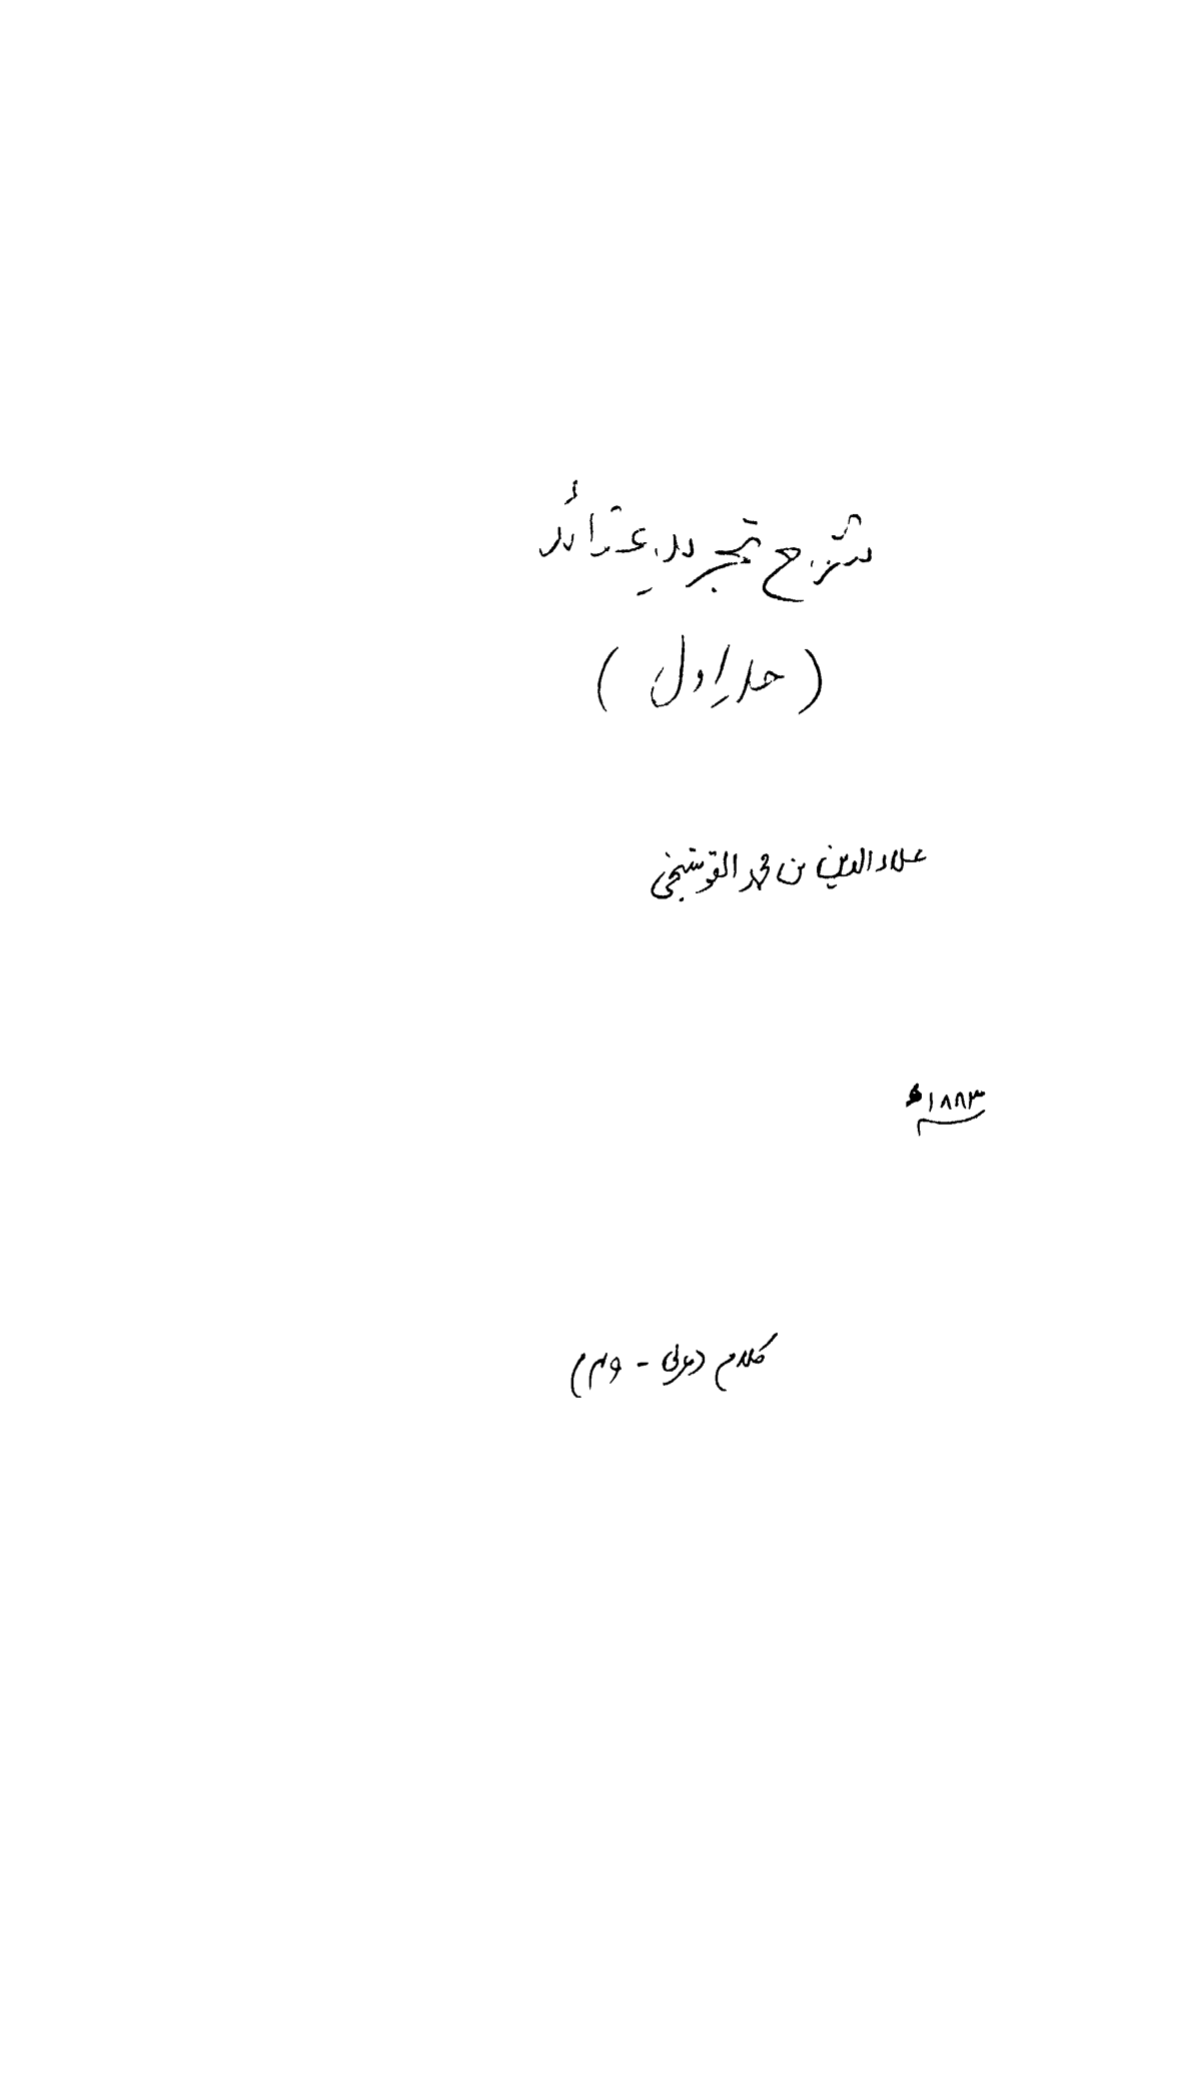 شرح تجرید عقائد
(جلد اول)
علاء الدین بن محمد القوشجی
۱۸۸۳
کلام (عربی - ۲۹)